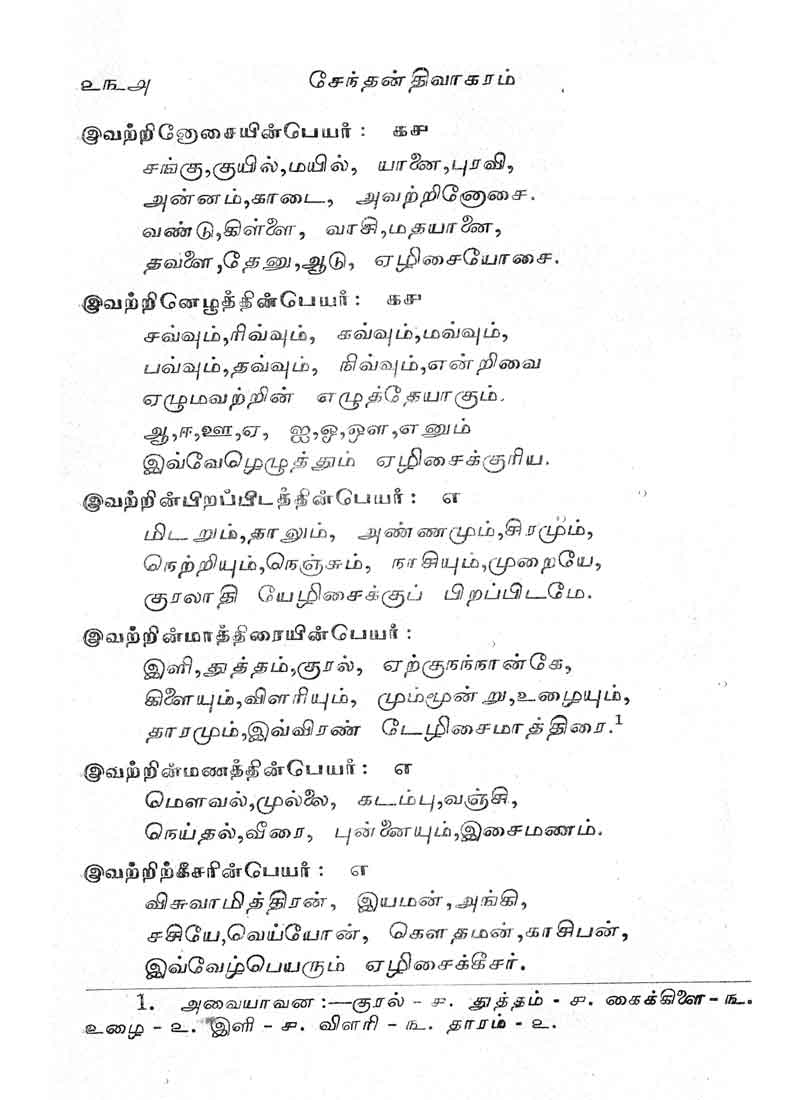 ௨௩௮ சேந்தன் திவாகரம்
இவற்றினோசையின்பெயர் : ௧௪
சங்கு,குயில்,மயில், யானை,புரவி,
அன்னம்,காடை, அவற்றினோசை.
வண்டு,கிள்ளை, வாசி,மதயானை,
தவளை,தேனு,ஆடு, ஏழிசையோசை.
இவற்றினெழுத்தின்பெயர் : ௧௪
சவ்வும்,ரிவ்வும், கவ்வும்,மவ்வும்,
பவ்வும்,தவ்வும், நிவ்வும்,என்றிவை
ஏழுமவற்றின் எழுத்தேயாகும்.
ஆ,ஈ,ஊ,ஏ, ஐ,ஓ,ஔ,எனும்
இவ்வேழெழுத்தும் ஏழிசைக்குரிய.
இவற்றின்பிறப்பிடத்தின்பெயர் : ௭
மிடறும்,தாலும், அண்ணமும்,சிரமும்,
நெற்றியும்,நெஞ்சும், நாசியும்,முறையே,
குரலாதி யேழிசைக்குப் பிறப்பிடமே.
இவற்றின்மாத்திரையின்பெயர் :
இளி,துத்தம்,குரல், ஏற்குநந்நான்கே,
கிளையும்,விளரியும், மும்மூன்று,உழையும்,
தாரமும்,இவ்விரண் டேழிசைமாத்திரை.¹
இவற்றின்மணத்தின்பெயர் : ௭
மௌவல்,முல்லை, கடம்பு,வஞ்சி,
நெய்தல்,வீரை, புன்னையும்,இசைமணம்.
இவற்றிற்கீசரின்பெயர் : ௭
விசுவாமித்திரன், இயமன்,அங்கி,
சசியே,வெய்யோன், கௌதமன்,காசிபன்,
இவ்வேழ்பெயரும் ஏழிசைக்கீசர்.
1. அவையாவன :—குரல் - ௪. துத்தம் - ௪. கைக்கிளை - ௩.
உழை - ௨. இளி - ௪. விளரி - ௩. தாரம் - ௨.